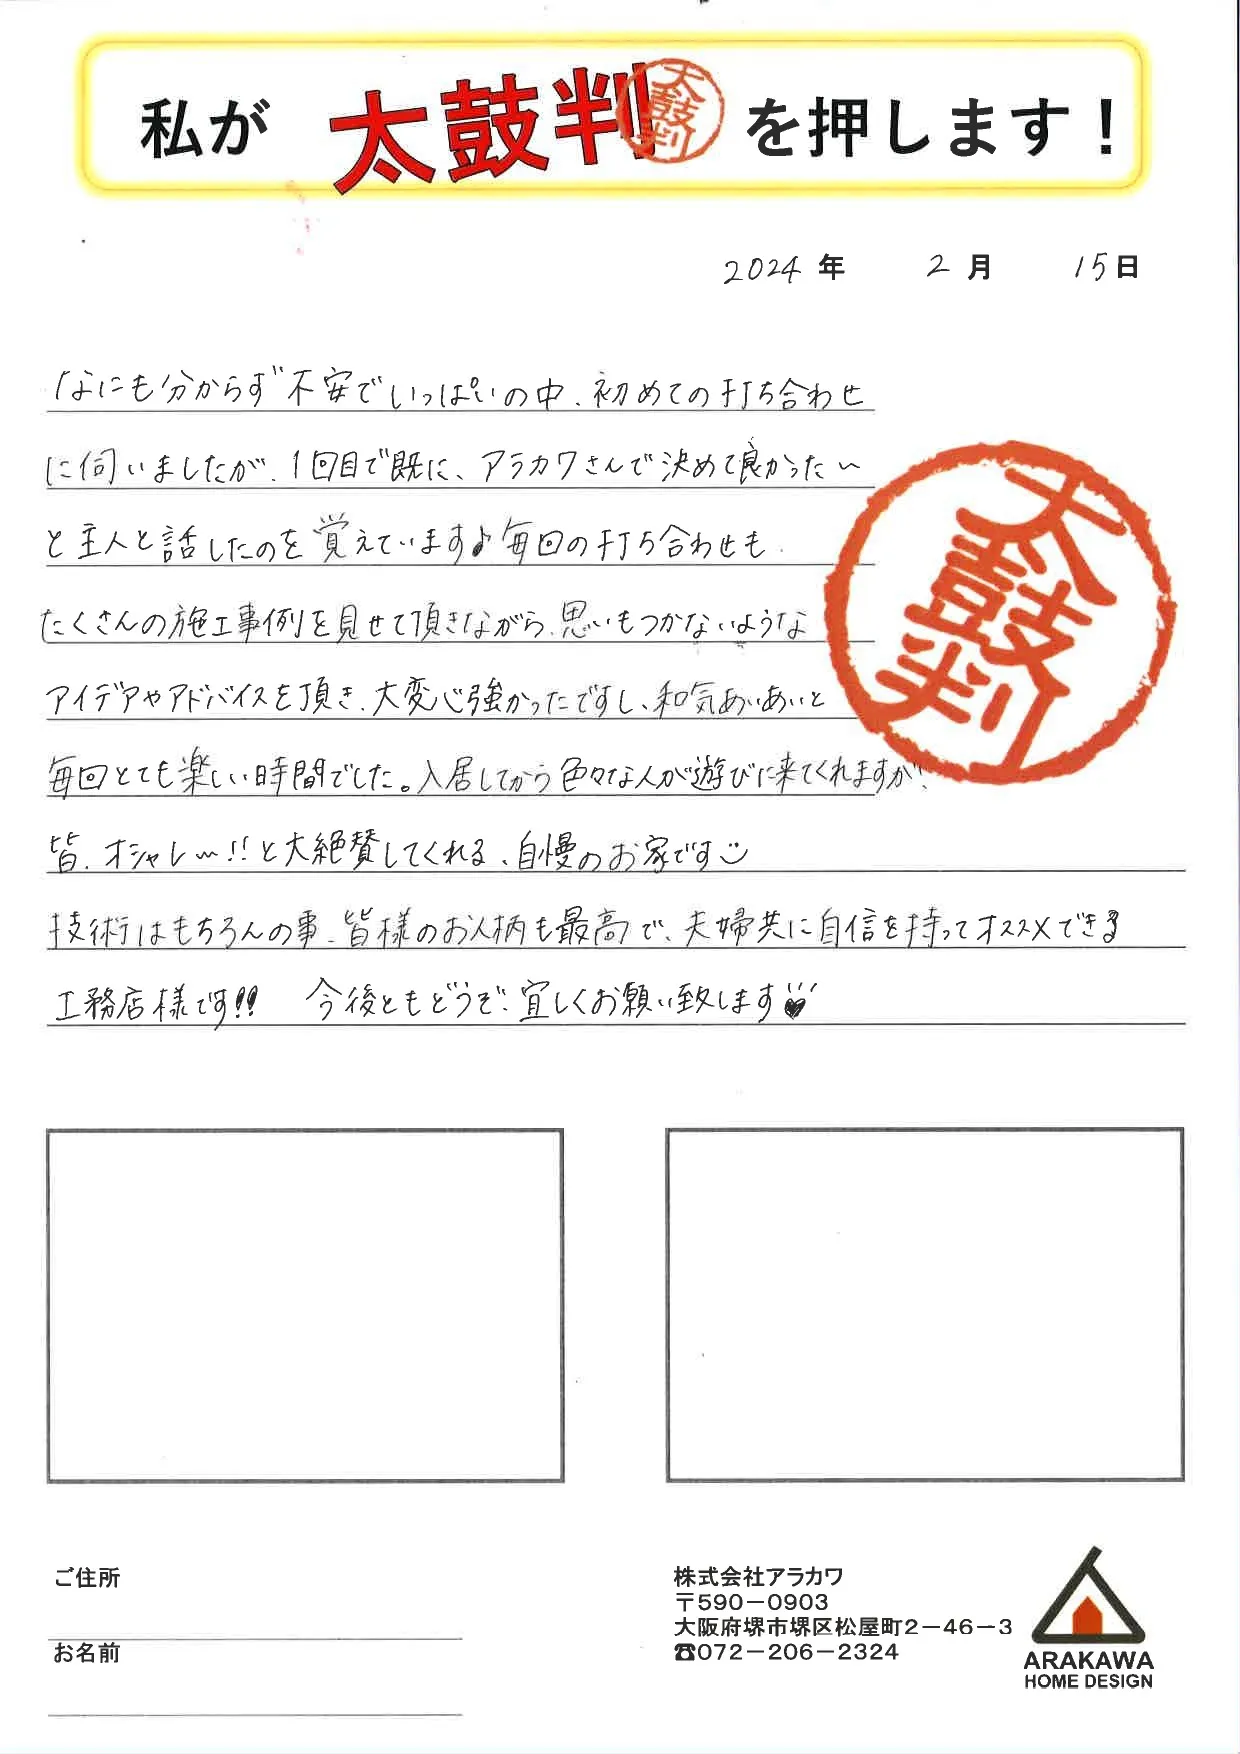 私が 太鼓判 太鼓判 を押します！
2024年 2月 15日
なにも分からず不安でいっぱいの中、初めての打ち合わせ
に伺いましたが、1回目で既に、アラカワさんで決めて良かった〜
と主人と話したのを覚えています♪毎回の打ち合わせも、
たくさんの施工事例を見せて頂きながら、思いもつかないような
アイデアやアドバイスを頂き、大変心強かったですし、和気あいあいと
毎回とても楽しい時間でした。入居してから色々な人が遊びに来てくれますが、
皆、オシャレ〜!!と大絶賛してくれる、自慢のお家です
技術はもちろんの事、皆様のお人柄も最高で、夫婦共に自信を持ってオススメできる
工務店様です!! 今後ともどうぞ、宜しくお願い致します♥
太鼓判
ご住所
お名前
株式会社アラカワ
〒590－0903
大阪府堺市堺区松屋町2－46－3
☎072－206－2324
ARAKAWA
HOME DESIGN